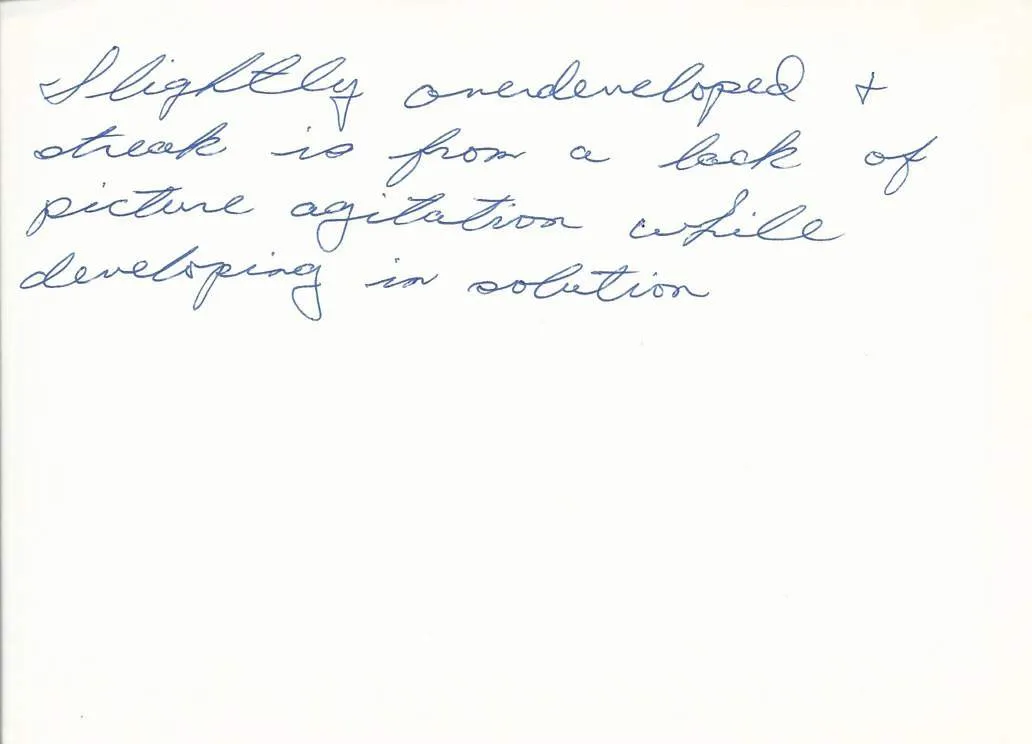 Slightly overdeveloped +
streak is from a lack of
picture agitation while
developing in solution